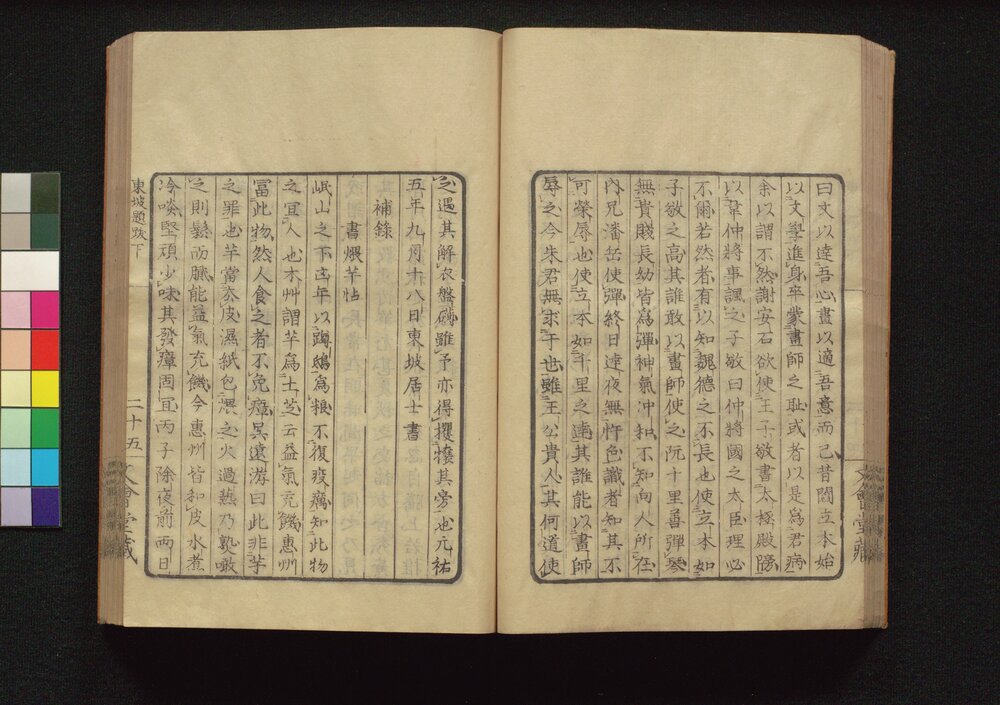 曰文以達吾心畫以適吾意而已昔閻立本始
以文學進身卒蒙畫師之耻或者以是為君病
余以謂不然謝安石欲使王子敬書太極殿牓
以韋仲將事諷之子敬曰仲將國之大臣理必
不爾若然者有以知魏德之不長也使立本如
子敬之高其誰敢以畫師使之阮千里善彈琴
無貴賤長幼皆為彈神氣冲和不知向人所在
內兄潘岳使彈終日達夜無忤色識者知其不
可榮辱也使立本如千里之達其誰能以畫師
辱之今朱君無求于也雖王公貴人其何道使
之遇其解衣盤礴雖予亦得攫攘其旁也元祐
五年九月十八日東坡居士書
補錄
書煨芋帖
岷山之下凶年以蹲鴟為粮不復疫癘知此物
之冝人也本艸謂芋為土芝云益氣充饑惠州
冨此物然人食之者不免瘴吴遠游曰此非芋
之罪也芋當去皮濕紙包煨之火過熱乃熟噉
之則鬆而膩能益氣充饑今惠州皆和皮水煮
冷啖堅頑少味其發瘴固冝丙子除夜前两日
東坡題跋下
二十五
文會堂藏